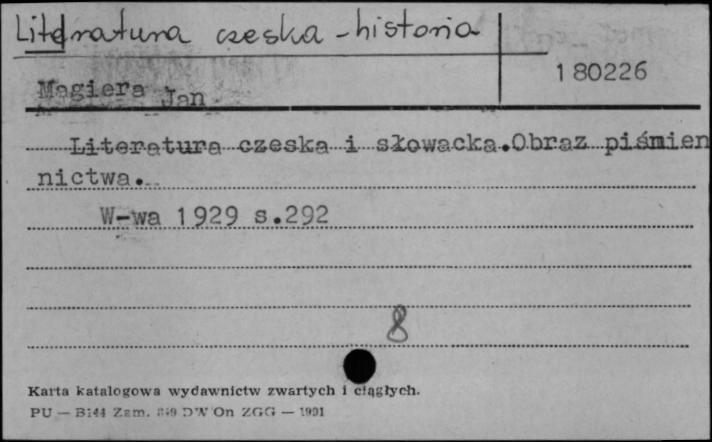 Literatura czeska - historia
180226
Magiera Jan
Literatura czeska i słowacka.Obraz piśmien
nictwa.
W-wa 1929 s.292
8
Karta katalogowa wydawnictw zwartych i ciągłych.
PU — Bi44 Zam. DW On ZGG — 1991